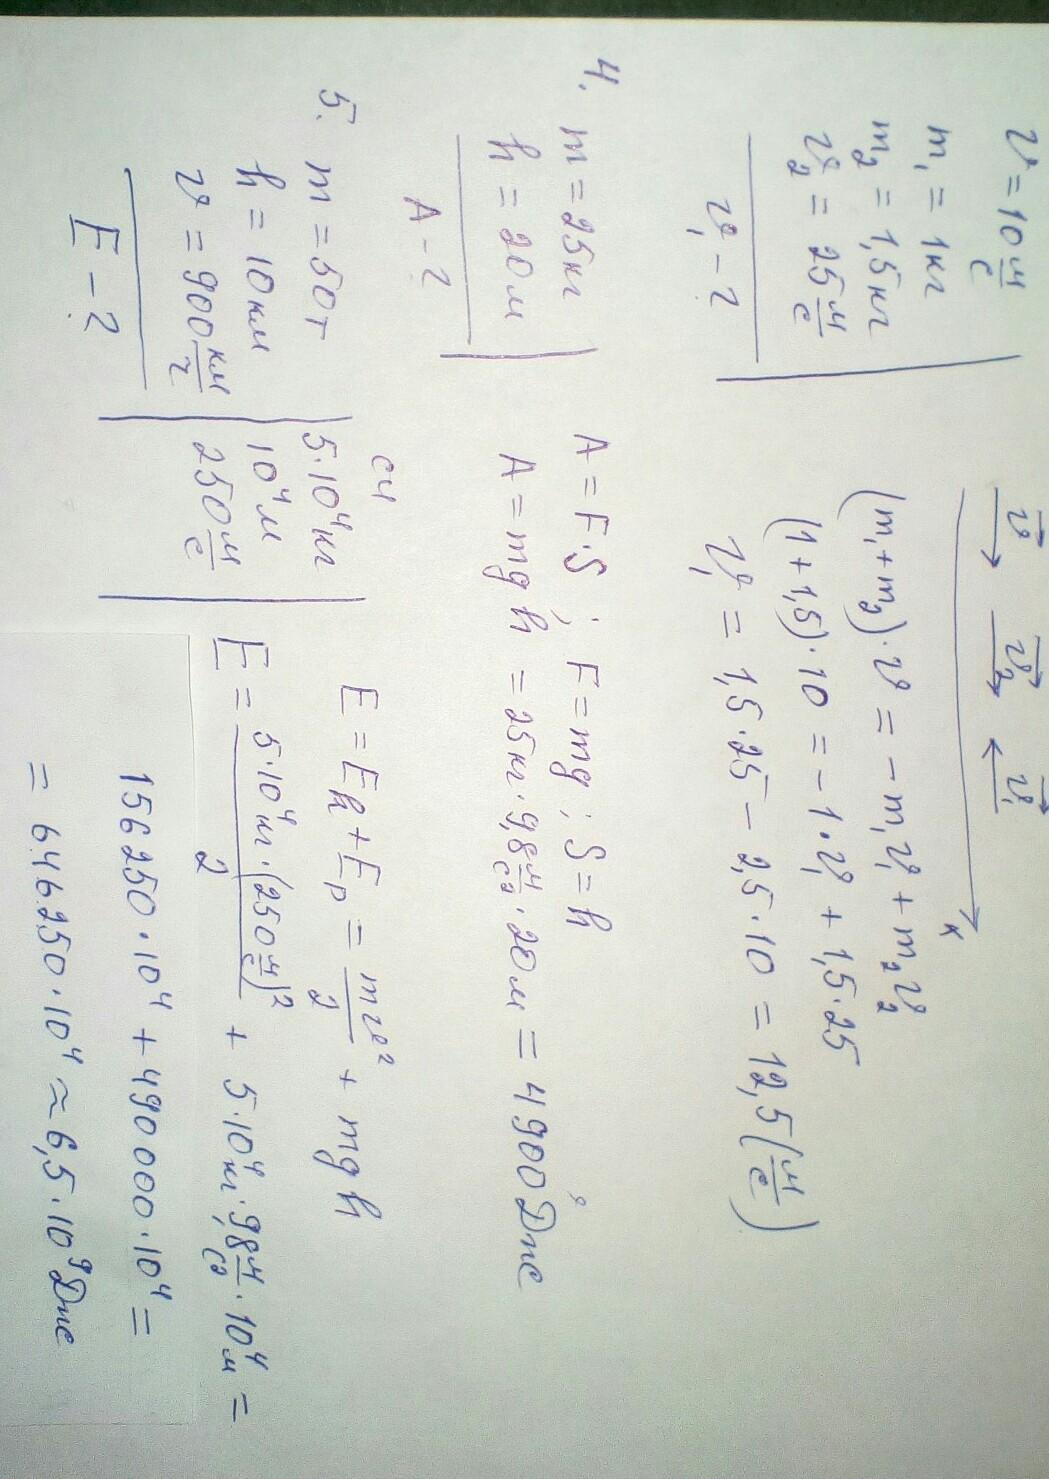 v = 10 м/с
m₁ = 1 кг
m₂ = 1,5 кг
v₂ = 25 м/с
v₁ - ?
v v₂ v₁
x
(m₁ + m₂) · v = - m₁v₁ + m₂v₂
(1 + 1,5) · 10 = - 1 · v₁ + 1,5 · 25
v₁ = 1,5 · 25 - 2,5 · 10 = 12,5 (м/с)
4. m = 25 кг
h = 20 м
A - ?
A = F·S ; F = mg ; S = h
A = mgh = 25 кг · 9,8 м/с² · 20 м = 4900 Дж
5. m = 50 т
h = 10 км
v = 900 км/ч
E - ?
СИ
5·10⁴ кг
10⁴ м
250 м/с
E = Eₖ + Eₚ = mv²/2 + mgh
E = 5·10⁴ кг · (250 м/с)²/2 + 5·10⁴ кг · 9,8 м/с² · 10⁴ м =
156250 · 10⁴ + 490000 · 10⁴ =
= 646250 · 10⁴ ≈ 6,5 · 10⁹ Дж